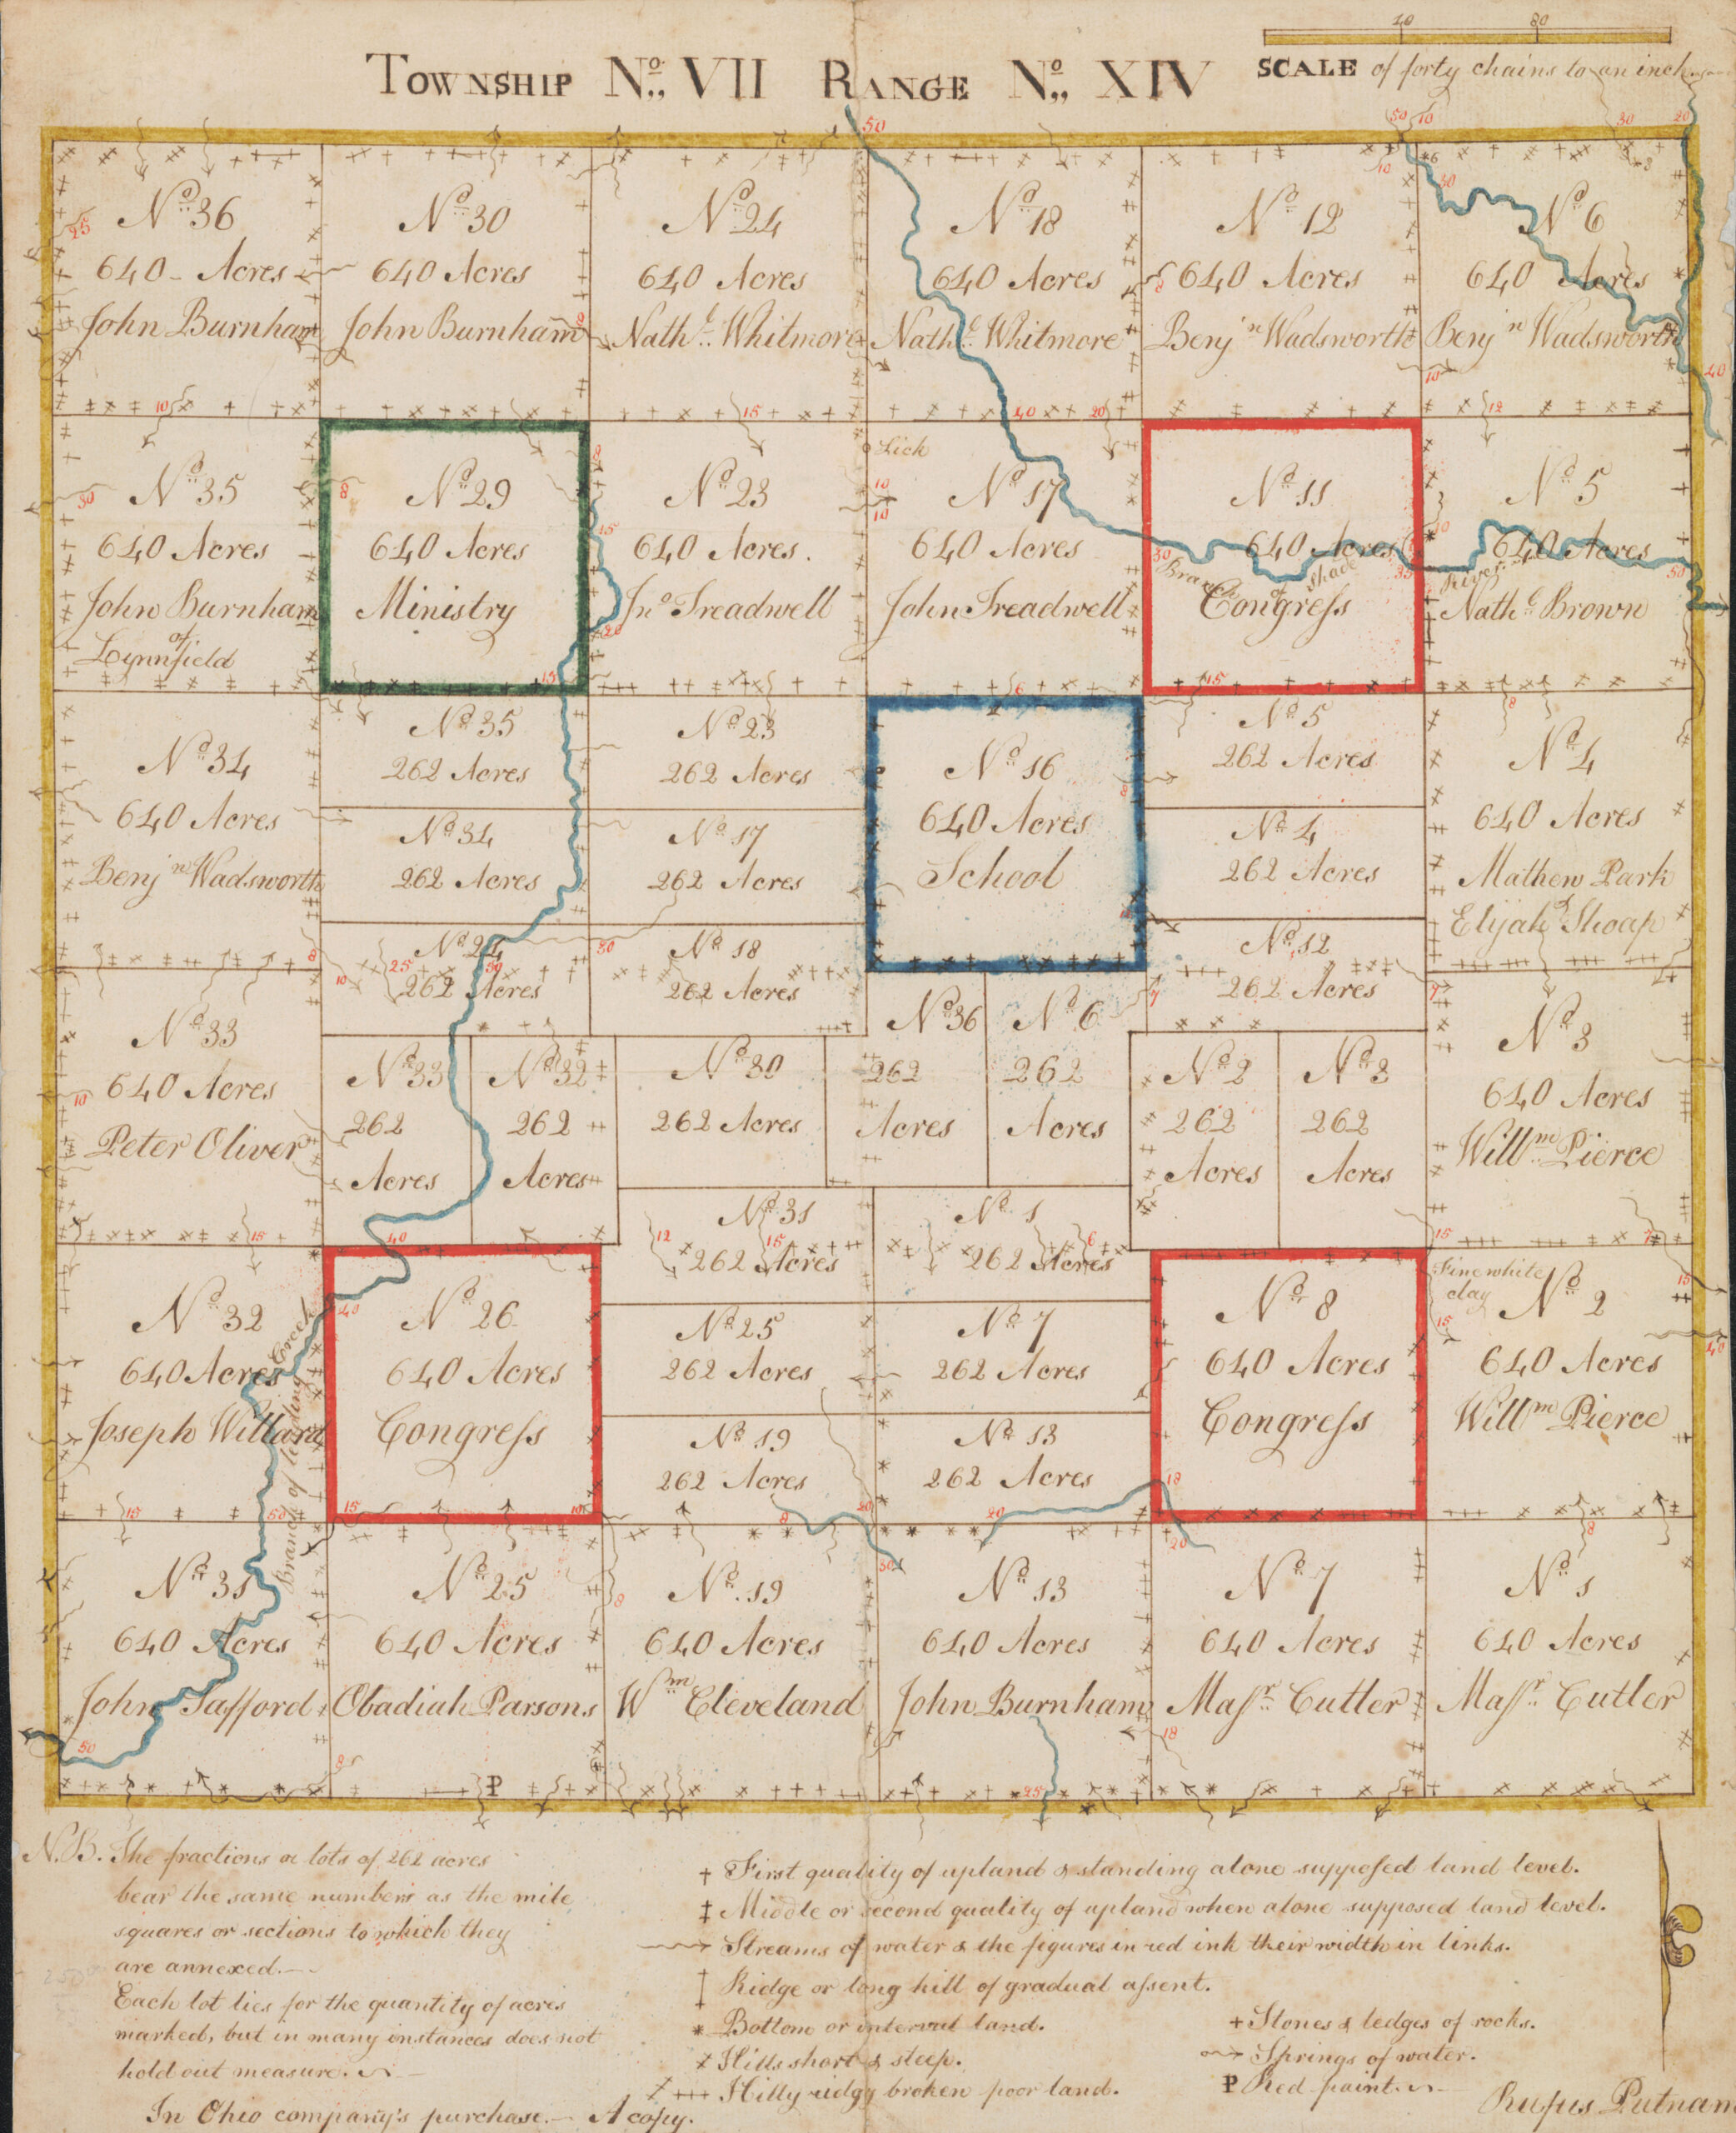 10 80
TOWNSHIP No. VII RANGE No. XIV
SCALE of forty chains to an inch.
No 36
640 - Acres
John Burnham
No 30
640 Acres
John Burnham
No 24
640 Acres
Nathl. Whitmore
No 18
640 Acres
Nathl. Whitmore
No 12
640 Acres
Benjn Wadsworth
No 6
640 Acres
Benjn Wadsworth
No 35
640 Acres
John Burnham
of
Lynnfield
No 29
640 Acres
Ministry
No 23
640 Acres.
Jno Treadwell
Lick
No 17
640 Acres
John Treadwell
No 11
640 Acres
Congress
Branch of Shade River
No 5
640 Acres
Nathl Brown
No 34
640 Acres
Benjn Wadsworth
No 35
262 Acres
No 34
262 Acres
No 24
262 Acres
No 23
262 Acres
No 17
262 Acres
No 18
262 Acres
No 16
640 Acres
School
No 5
262 Acres
No 4
262 Acres
No 12
262 Acres
No 4
640 Acres
Mathew Park
Elijah Shoap
No 33
640 Acres
Peter Oliver
No 33
262
Acres
No 32
262
Acres
No 30
262 Acres
No 36
262
Acres
No 6
262
Acres
No 2
262
Acres
No 3
262
Acres
No 3
640 Acres
Willm Pierce
No 31
262 Acres
No 1
262 Acres
No 32
640 Acres
Joseph Willard
Branch of Leading Creek
No 26
640 Acres
Congress
No 25
262 Acres
No 19
262 Acres
No 7
262 Acres
No 13
262 Acres
No 8
640 Acres
Congress
Fine white
clay
No 2
640 Acres
Willm Pierce
No 31
640 Acres
John Safford
No 25
640 Acres
Obadiah Parsons
No. 19
640 Acres
Wm Cleveland
No 13
640 Acres
John Burnham
No 7
640 Acres
Massr. Cutler
No 1
640 Acres
Massr. Cutler
P
N.B. The fractions or lots of 262 acres
bear the same numbers as the mile
squares or sections to which they
are annexed.
Each lot lies for the quantity of acres
marked, but in many instances does not
hold out measure.
In Ohio company's purchase. — A copy.
† First quality of upland & standing alone supposed land level.
‡ Middle or second quality of upland when alone supposed land level.
Streams of water & the figures in red ink their width in links.
Ridge or long hill of gradual assent.
* Bottom or interval land.
Hills short & steep.
Hilly ridgy broken poor land.
+ Stones & ledges of rocks.
Springs of water.
P Red paint.
Rufus Putnam